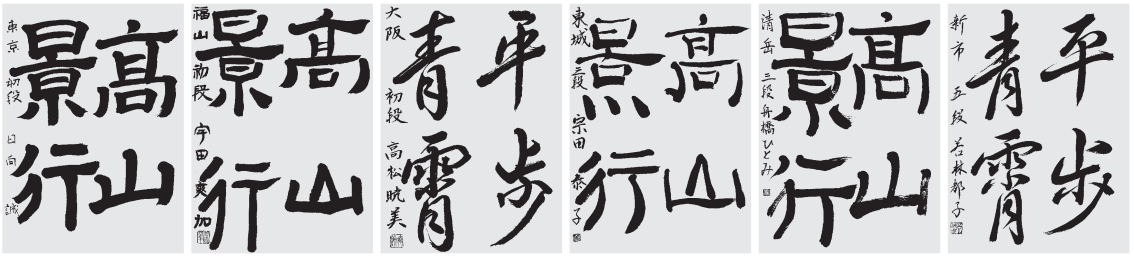 高山
景行
東京 初段 日向 誠
高山
景行
福山 初段 宇田 爽加
平歩
青霄
大阪 初段 高松暁美
高山
景行
東城 三段 宗田 泰子
高山
景行
清岳 三段 舟橋ひとみ
平歩
青霄
新市 五段 若林郁子